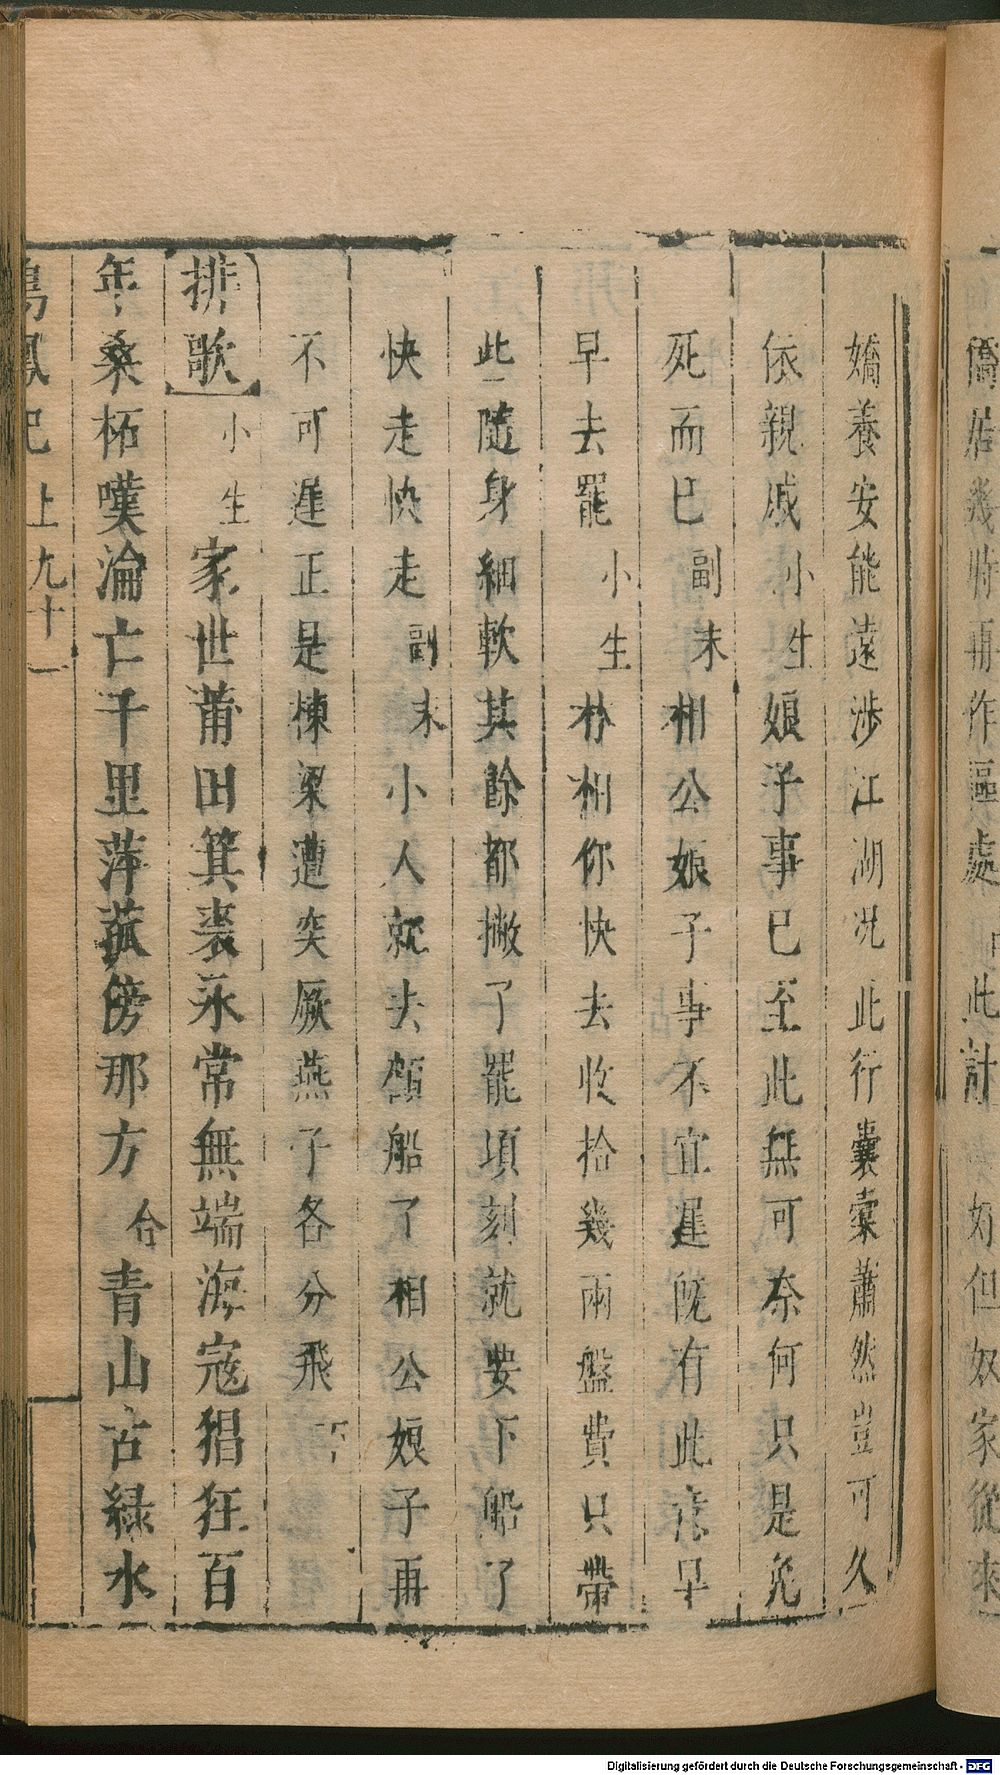 僑居幾時再作區處此計好但奴家從來
嬌養安能遠涉江湖况此行囊橐蕭然豈可久
依親戚小生娘子事已至此無可奈何只是免
死而已副末相公娘子事不宜遲旣有此意早
早去罷小生朴相你快去收拾幾兩盤費只帶
此隨身細軟其餘都撇了罷頃刻就要下船了
快走快走副末小人就去顧船了相公娘子再
不可遲正是棟梁遭突厥燕子各分飛下
排歌小生家世莆田箕裘永常無端海寇猖狂百
年桑柘嘆淪亡千里萍菰傍那方合青山古綠水
鳳記上九十一
Digitalisierung gefördert durch die Deutsche Forschungsgemeinschaft - DFG